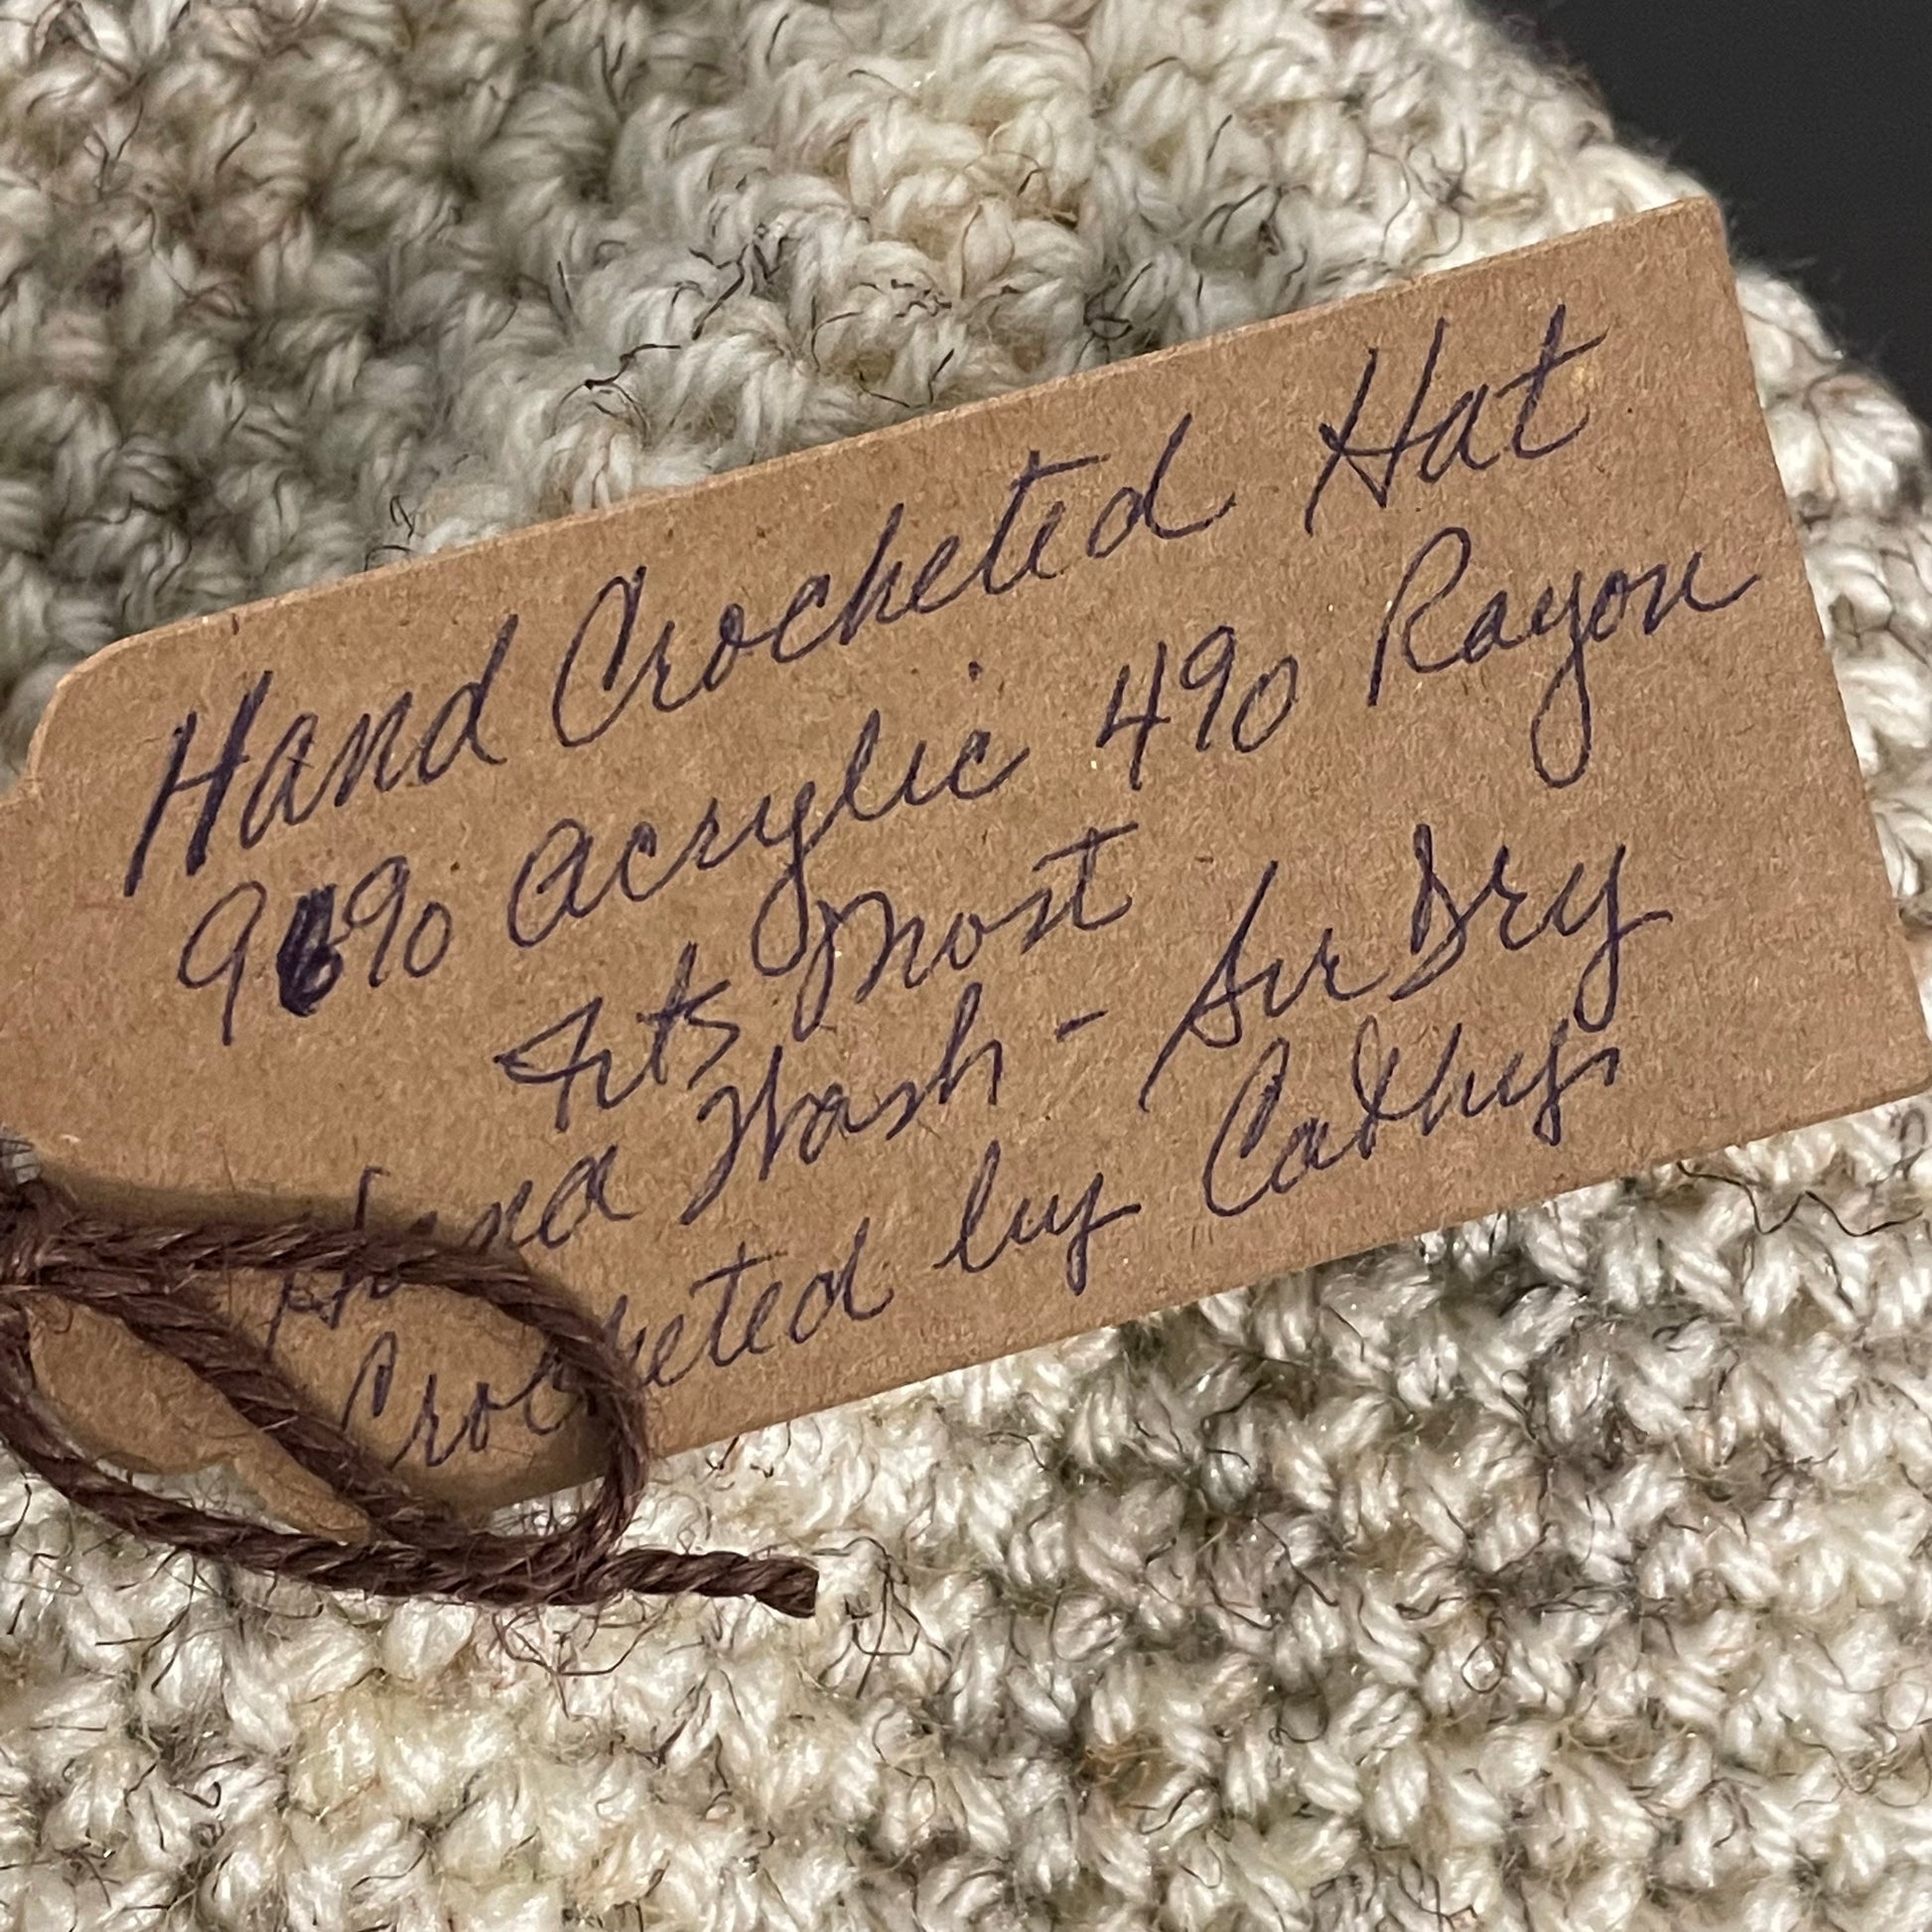 Hand Crocheted Hat
96% Acrylic 4% Rayon
Fits Most
Hand Wash - Air Dry
Crocheted by Cathy